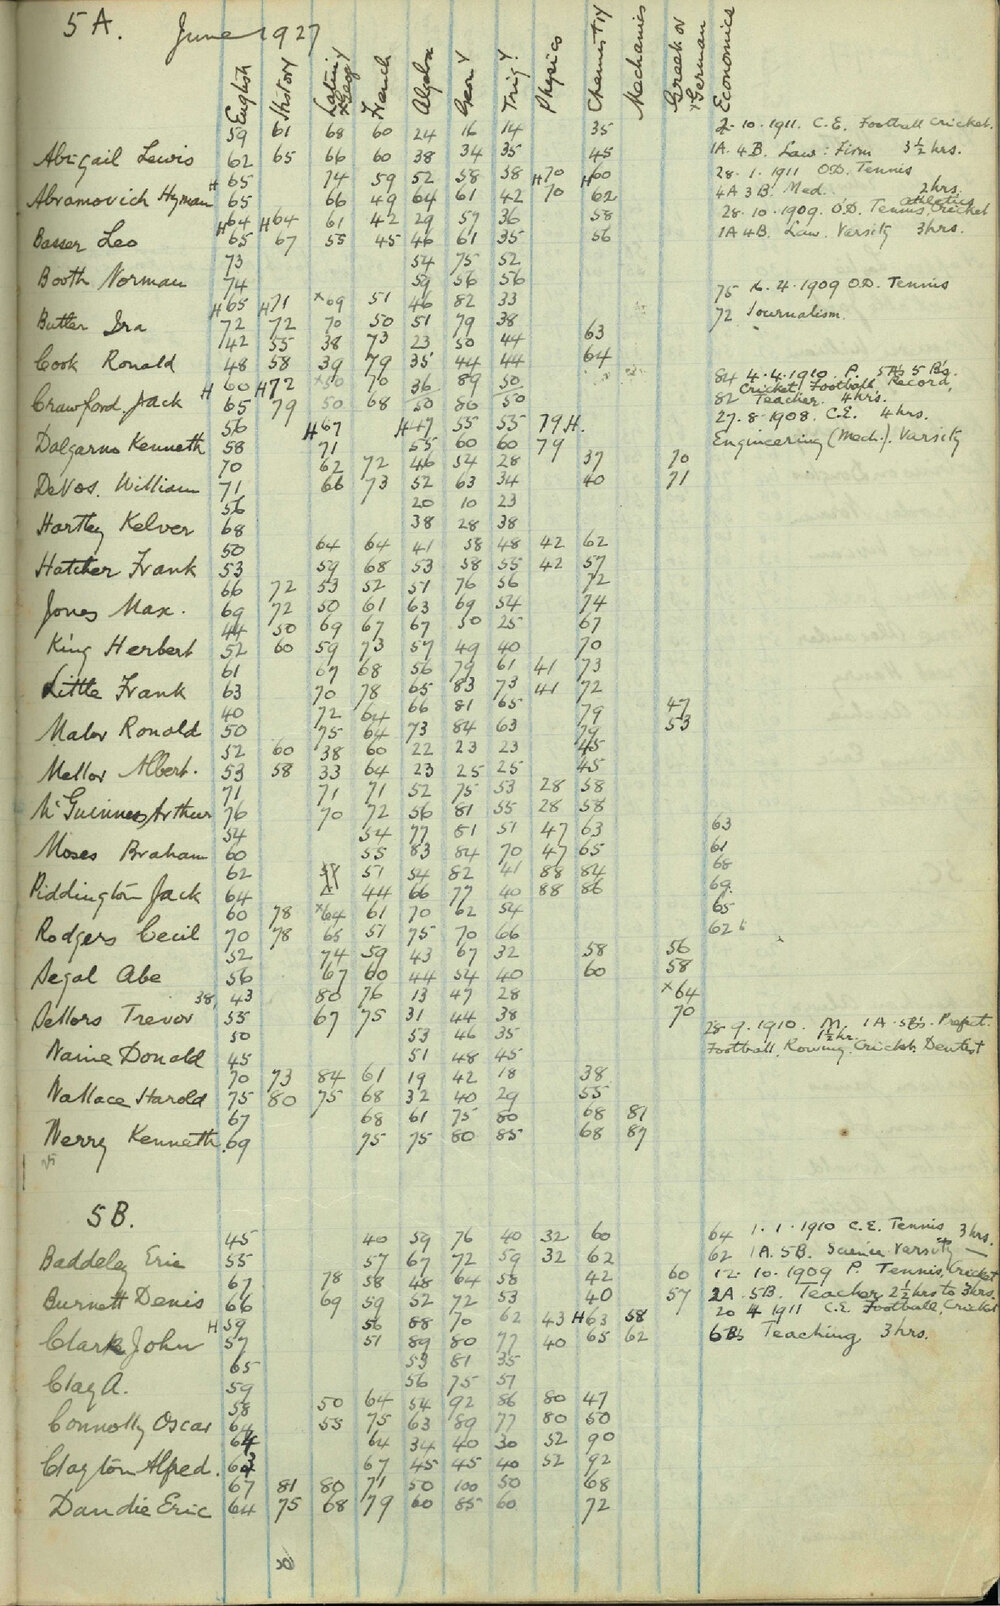 5A. June 1927
English History Latin xGeogy French Algebra Geomy Trigy Physics Chemistry Mechanics Greek or xGerman Economics
59 61 68 60 24 16 14 35 2·10·1911. C.E. Football Cricket.
Abigail Lewis 62 65 66 60 38 34 35 45 1A. 4B. Law: Firm 3½ hrs.
H65 74 59 52 58 58 H70 H60 28·1·1911 O.D. Tennis
Abramovich Hyman 65 66 49 64 61 42 70 62 4A 3B. Med. 2hrs.
H64 H64 61 42 29 57 36 58 28·10·1909. O.D. Tennis, Cricket athletics
Basser Leo 65 67 55 45 46 61 35 56 1A 4B. Law. Varsity 3hrs.
73 54 75 52
Booth Norman 74 59 56 56
H65 H71 x69 51 46 82 33 75 16·4·1909 O.D. Tennis
Butler Ira 72 72 70 50 51 79 38 72 Journalism.
42 55 38 73 23 50 44 63
Cook Ronald 48 58 39 79 35 44 44 64
H 60 H72 x50 70 36 89 50 84 4·4·1910. P. 5A's 5B's. Cricket, Football, Record,
Crawford Jack 65 79 50 68 50 86 50 82 Teacher. 4hrs.
56 H67 H47 55 55 79H. 27·8·1908. C.E. 4hrs.
Dalgarno Kenneth 58 71 55 60 60 79 Engineering (Mech.). Varsity
70 62 72 46 54 28 37 70
DeVos. William 71 66 73 52 63 34 40 71
56 20 10 23
Hartley Kelver 68 38 28 38
50 64 64 41 58 48 42 62
Hatcher Frank 53 59 68 53 58 55 42 57
66 72 53 52 51 76 56 72
Jones Max. 69 72 50 61 63 69 54 74
44 50 69 67 67 50 25 67
King Herbert 52 60 59 73 57 49 40 70
61 67 68 56 79 61 41 73
Little Frank 63 70 78 65 83 73 41 72
40 72 64 66 81 65 79 47
Malor Ronald 50 75 64 73 84 63 79 53
52 60 38 60 22 23 23 45
Mellor Albert. 53 58 33 64 23 25 25 45
71 71 71 52 75 53 28 58
McGuinness Arthur 76 70 72 56 81 55 28 58
54 54 77 81 51 47 63 63
Moses Braham 60 55 83 84 70 47 65 61
62 51 54 82 41 88 84 68
Piddington Jack 64 44 66 77 40 88 86 69.
60 78 x64 61 70 62 54 65
Rodgers Cecil 70 78 65 51 75 70 66 62
52 74 59 43 67 32 58 56
Segal Abe 56 67 60 44 54 40 60 58
38, 43 80 76 13 47 28 x64
Sellors Trevor 55 67 75 31 44 38 70
50 53 46 35 28·9·1910. M. 1A·5B's. Prefect. 1½hr.
Waine Donald 45 51 48 45 Football, Rowing, Cricket, Dentist
70 73 84 61 19 42 18 38
Wallace Harold 75 80 75 68 32 40 29 55
67 68 61 75 80 68 81
Werry Kenneth. 69 75 75 80 85 68 87
5B.
45 40 59 76 40 32 60 64 1·1·1910 C.E. Tennis 3hrs.
Baddeley Eric 55 57 67 72 59 32 62 62 1A. 5B. Science Varsity
67 78 58 48 64 58 42 60 12·10·1909 P. Tennis, Cricket
Burnett Denis 66 69 59 52 72 53 40 57 2A. 5B. Teacher 2½hrs to 3hrs.
H59 56 88 70 62 43 H63 58 20 4 1911 C.E. Football, Cricket
Clark John 57 51 89 80 77 40 65 62 6B's Teaching 3hrs.
65 53 81 35
Clay A. 59 56 75 57
58 50 64 54 92 86 80 47
Connolly Oscar 64 55 75 63 89 77 80 50
64 64 34 40 30 52 90
Clayton Alfred. 63 67 45 45 40 52 92
67 81 80 71 50 100 50 68
Dandie Eric 64 75 68 79 60 85 60 72